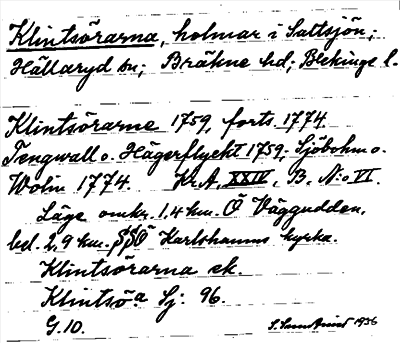 Klintsörarna, holmar i Saltsjön;
Hällaryd sn; Bräkne hd; Blekinge l.
Klintsörarne 1759, forts. 1774.
Tengwall o. Hägerflyckt 1759; Sjöbohm o.
Wolin 1774. Kr.A, XXIV, B, N:o VI.
Läge omkr. 1,4 km. Ö Väggudden,
bel. 2,9 km. Karlshamns kyrka.
Klintsörarna ek.
Klintsöa Sj: 96.
G. 10.
1936